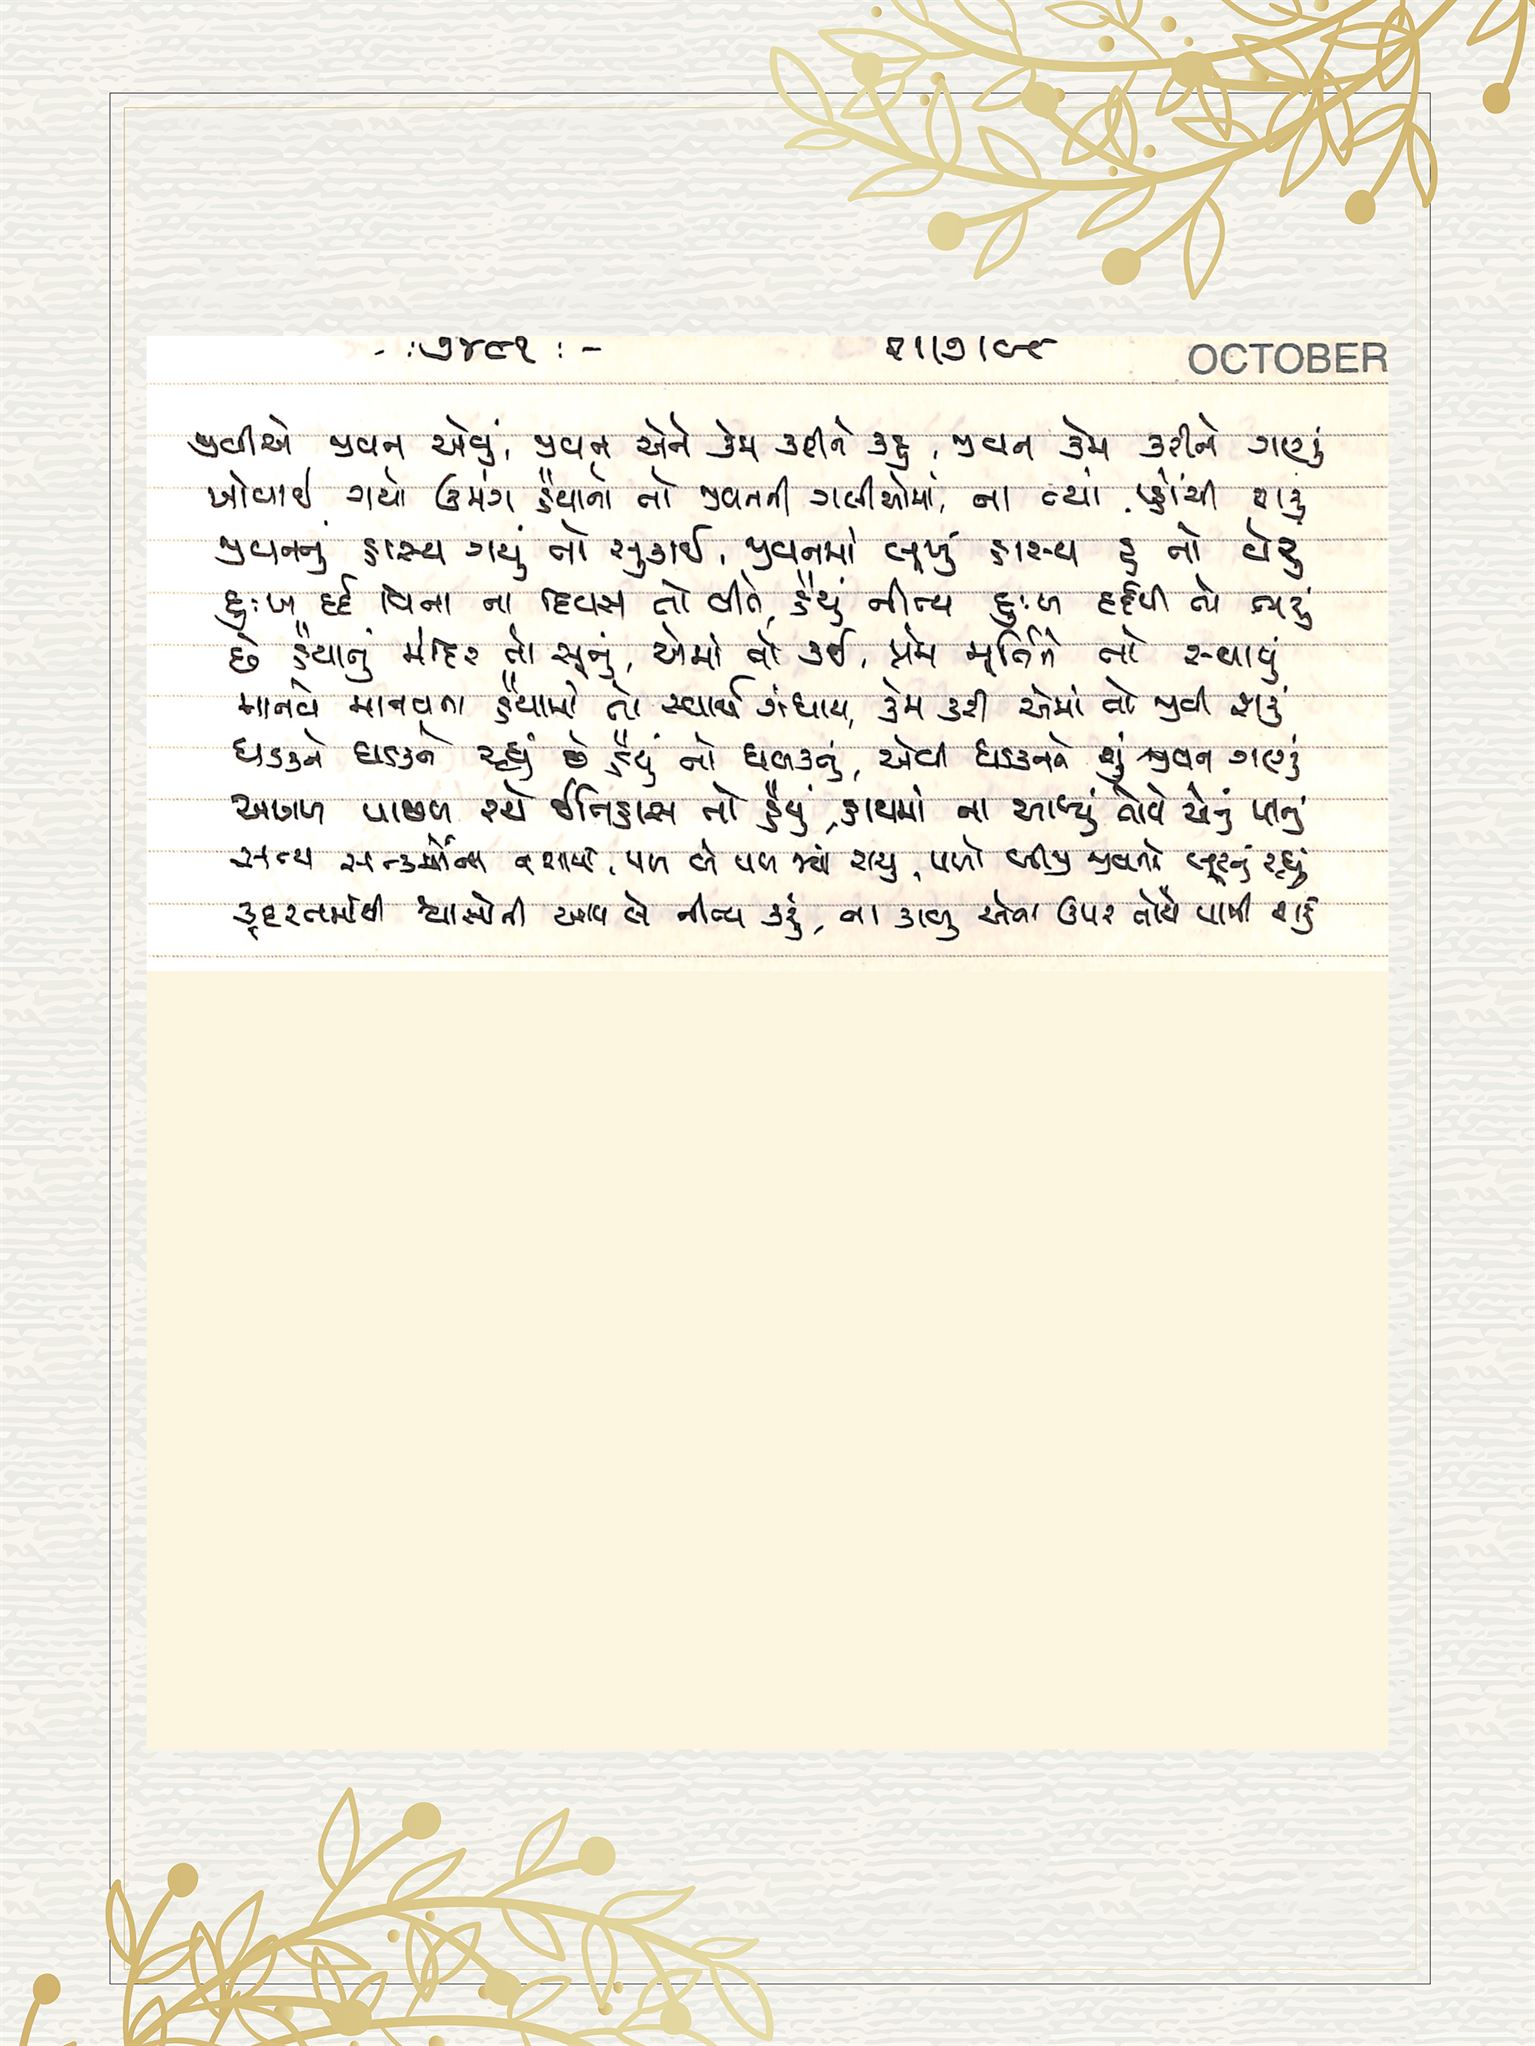 -:૭૪૯૧:- ૨૧|૭|૯૮ OCTOBER
જીવીએ જીવન એવું, જીવન એને કેમ કરીને કહું, જીવન કેમ કરીને ગણું
ખોવાઈ ગયો ઉમંગ હૈયાનો તો જીવનની ગલીઓમાં, ના ત્યાં પ્હોંચી શકું
જીવનનું હાસ્ય ગયું તો સુકાઈ, જીવનમાં લૂખું હાસ્ય હું તો વેરું
દુઃખ દર્દ વિના ના દિવસ તો વીતે, હૈયું નીત્ય દુઃખ દર્દથી તો
છે હૈયાનું મંદિર તો સૂનું, એમાં તો કઈ, પ્રેમ મૂર્તિને તો સ્થાપું
માનવે માનવના હૈયામાં તો સ્વાર્થ ગંધાય, કેમ કરી એમાં તો જીવી શકું
ધડકને ધડકને રહ્યું છે હૈયું તો ધબકતું, એવી ધડકનને શું જીવન ગણું
આગળ પાછળ રચે ઈતિહાસ તો હૈયું, હાથમાં ના આવ્યું તોયે એનું પાનું
સત્ય સત્કર્મોના નશામાં, પળ બે પળ જ્યાં રાચ્યું, પળો બીજી જીવનનો રહ્યું
કુદરતમાંથી શ્વાસોની આવ લે નીત્ય કરું, ના કાબૂ એના ઉપર તોયે પામી શકું